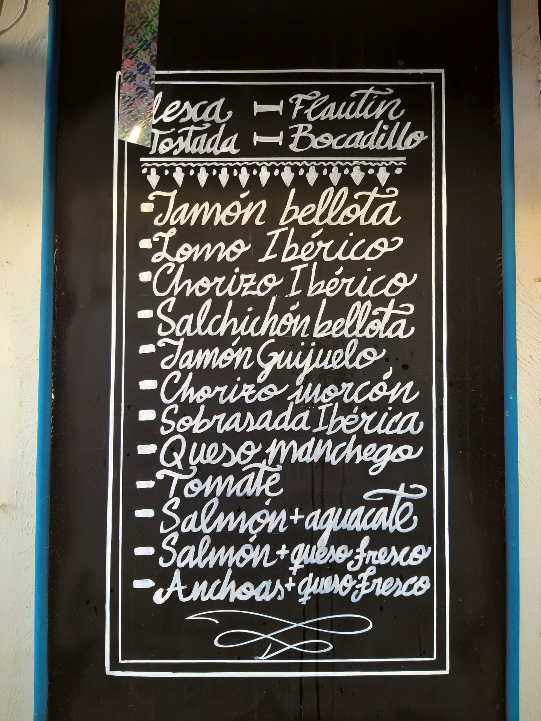 - Flautín
Tostada - Bocadillo
- Jamón bellota
- Lomo Ibérico
- Chorizo Ibérico
- Salchichón bellota
- Jamón Guijuelo
- Chorizo morcón
- Sobrasada Ibérica
- Queso manchego
- Tomate
- Salmón + aguacate
- Salmón + queso fresco
- Anchoas + queso Fresco